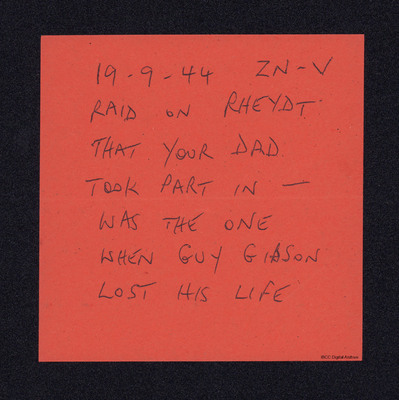 19-9-44 ZN-V
RAID ON RHEYDT
THAT YOUR DAD
TOOK PART IN —
WAS THE ONE
WHEN GUY GIBSON
LOST HIS LIFE
IBCC Digital Archive